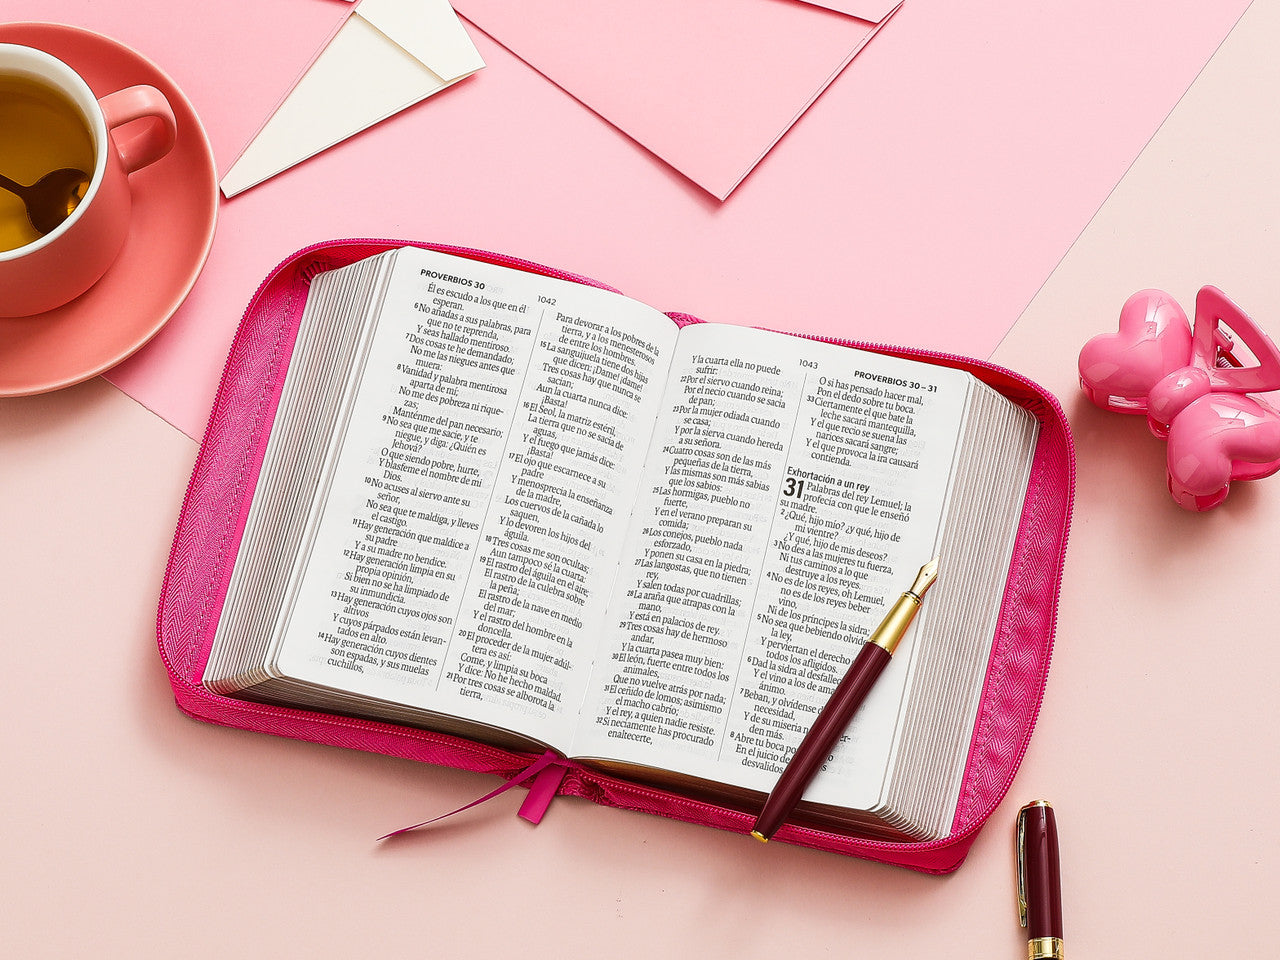 PROVERBIOS 30
1042
Él es escudo a los que en él
esperan.
6 No añadas a sus palabras, para
que no te reprenda,
Y seas hallado mentiroso
7 Dos cosas te he demandado;
No me las niegues antes que
muera:
8 Vanidad y palabra mentirosa
aparta de mí;
No me des pobreza ni rique-
zas;
Manténme del pan necesario;
9 No sea que me sacie, y te
niegue, y diga: ¿Quién es
Jehová?
O que siendo pobre, hurte,
Y blasfeme el nombre de mi
Dios.
10 No acuses al siervo ante su
señor,
No sea que te maldiga, y lleves
el castigo.
11 Hay generación que maldice a
su padre
Y a su madre no bendice.
12 Hay generación limpia en su
propia opinión,
Si bien no se ha limpiado de
su inmundicia.
13 Hay generación cuyos ojos son
altivos
Y cuyos párpados están levan-
tados en alto.
14 Hay generación cuyos dientes
son espadas, y sus muelas
cuchillos,
Para devorar a los pobres de la
tierra, y a los menesterosos
de entre los hombres.
15 La sanguijuela tiene dos hijas
que dicen: ¡Dame! ¡dame!
Tres cosas hay que nunca se
sacian;
Aun la cuarta nunca dice:
¡Basta!
16 El Seol, la matriz estéril,
La tierra que no se sacia de
aguas,
Y el fuego que jamás dice:
¡Basta!
17 El ojo que escarnece a su
padre
Y menosprecia la enseñanza
de la madre,
Los cuervos de la cañada lo
saquen,
Y lo devoren los hijos del
águila.
18 Tres cosas me son ocultas;
Aun tampoco sé la cuarta:
19 El rastro del águila en el aire;
El rastro de la culebra sobre
la peña;
El rastro de la nave en medio
del mar;
Y el rastro del hombre en la
doncella.
20 El proceder de la mujer adúl-
tera es así:
Come, y limpia su boca
Y dice: No he hecho maldad.
21 Por tres cosas se alborota la
tierra,
1043
PROVERBIOS 30 – 31
Y la cuarta ella no puede
sufrir:
22 Por el siervo cuando reina;
Por el necio cuando se sacia
de pan;
23 Por la mujer odiada cuando
se casa;
Y por la sierva cuando hereda
a su señora.
24 Cuatro cosas son de las más
pequeñas de la tierra,
Y las mismas son más sabias
que los sabios:
25 Las hormigas, pueblo no
fuerte,
Y en el verano preparan su
comida;
26 Los conejos, pueblo nada
esforzado,
Y ponen su casa en la piedra;
27 Las langostas, que no tienen
rey,
Y salen todas por cuadrillas;
28 La araña que atrapas con la
mano,
Y está en palacios de rey.
29 Tres cosas hay de hermoso
andar,
Y la cuarta pasea muy bien:
30 El león, fuerte entre todos los
animales,
Que no vuelve atrás por nada;
31 El ceñido de lomos; asimismo
el macho cabrío;
Y el rey, a quien nadie resiste.
32 Si neciamente has procurado
enaltecerte,
O si has pensado hacer mal,
Pon el dedo sobre tu boca.
33 Ciertamente el que bate la
leche sacará mantequilla,
Y el que recio se suena las
narices sacará sangre;
Y el que provoca la ira causará
contienda.
Exhortación a un rey
31 Palabras del rey Lemuel; la
profecía con que le enseñó
su madre.
2 ¿Qué, hijo mío? ¿y qué, hijo de
mi vientre?
¿Y qué, hijo de mis deseos?
3 No des a las mujeres tu fuerza,
Ni tus caminos a lo que
destruye a los reyes.
4 No es de los reyes, oh Lemuel,
no es de los reyes beber
vino,
Ni de los príncipes la sidra;
5 No sea que bebiendo olvide
la ley,
Y perviertan el derecho
todos los afligidos.
6 Dad la sidra al desfallec
Y el vino a los de ama
ánimo.
7 Beban, y olvídense d
necesidad,
Y de su miseria n
den más.
8 Abre tu boca po
En el juicio de
desvalidos